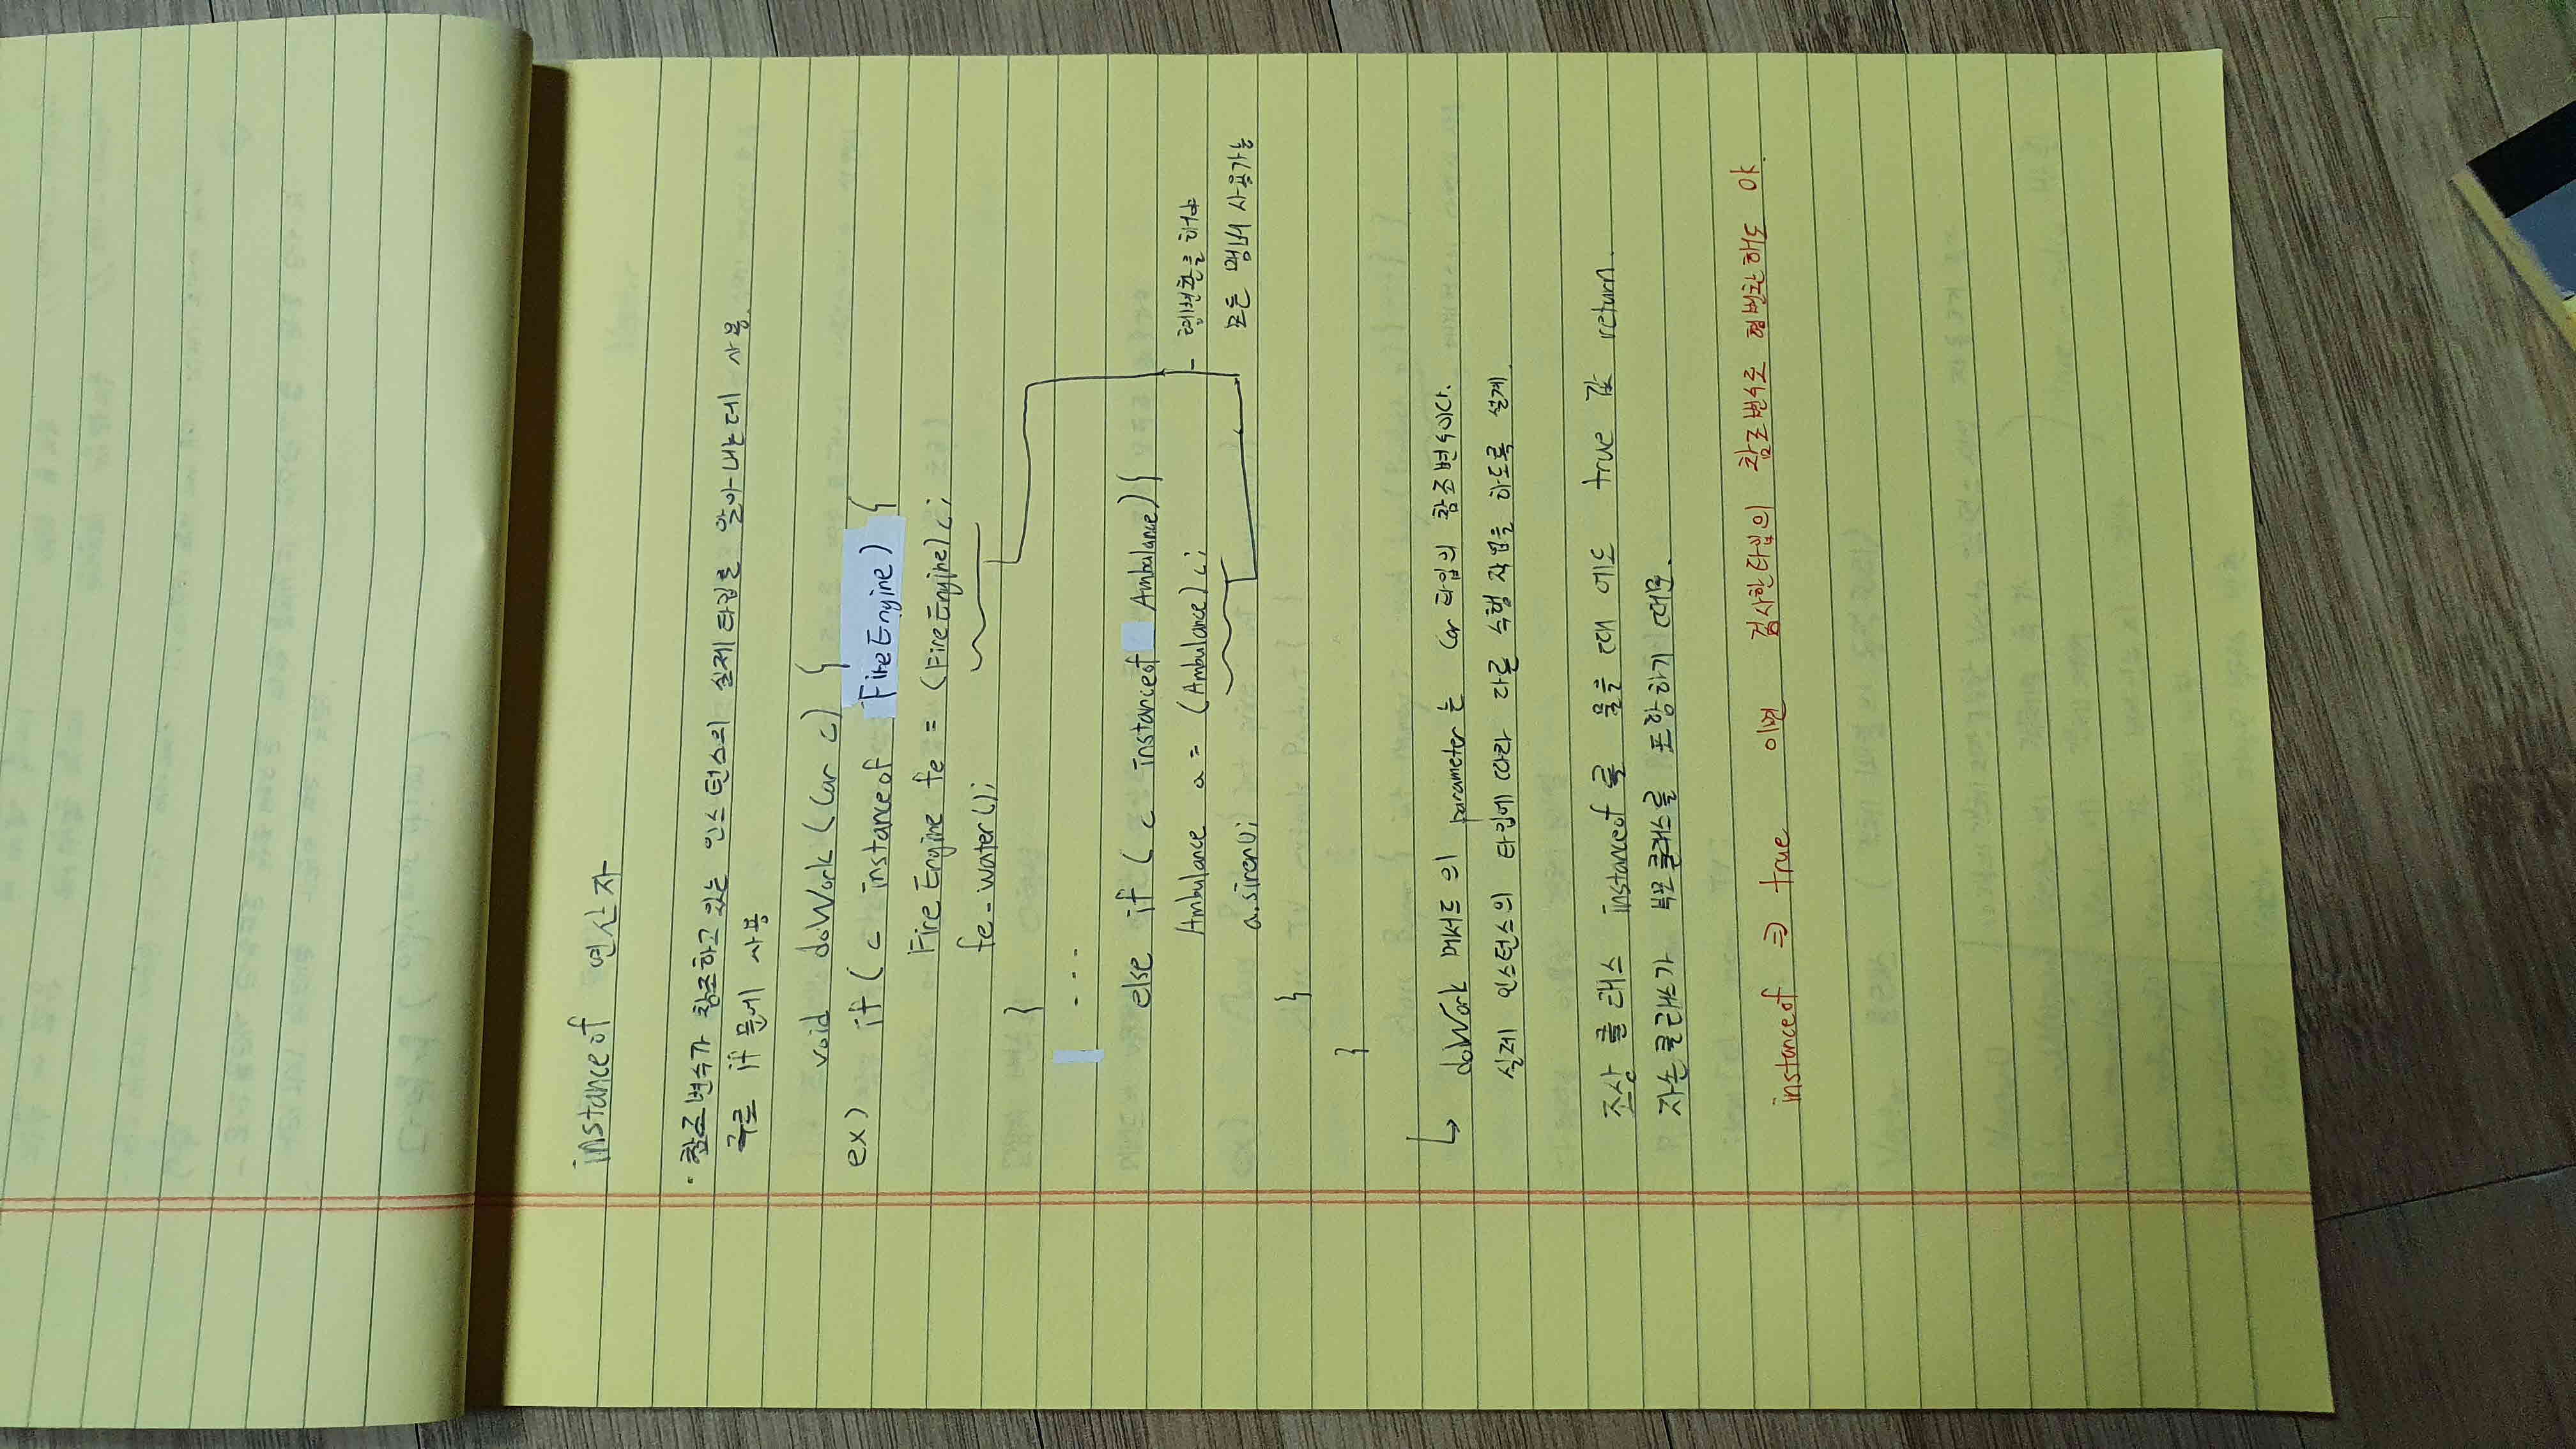 instanceof 연산자
· 참조변수가 참조하고 있는 인스턴스의 실제 타입을 알아내는데 사용.
주로 if문에 사용
void doWork (Car c) {
ex) if ( c instanceof FireEngine) {
Fire Engine fe = (FireEngine) c;
fe - water();
}
- - -
else if ( c instanceof Ambulance) {
Ambulance a = (Ambulance) c;
- 형변환을 해야
모든 멤버 사용가능
a.siren();
}
}
↳ doWork 메서드의 parameter는 Car 타입의 참조변수이다.
실제 인스턴스의 타입에 따라 다른 수행 작업을 하도록 설계.
조상 클래스 instanceof를 물을 때 에도 true 값 return.
자손클래스가 부모클래스를 포함하기 때문.
instanceof ⇒ true 이면 검사한타입의 참조변수로 형변환해도 야.